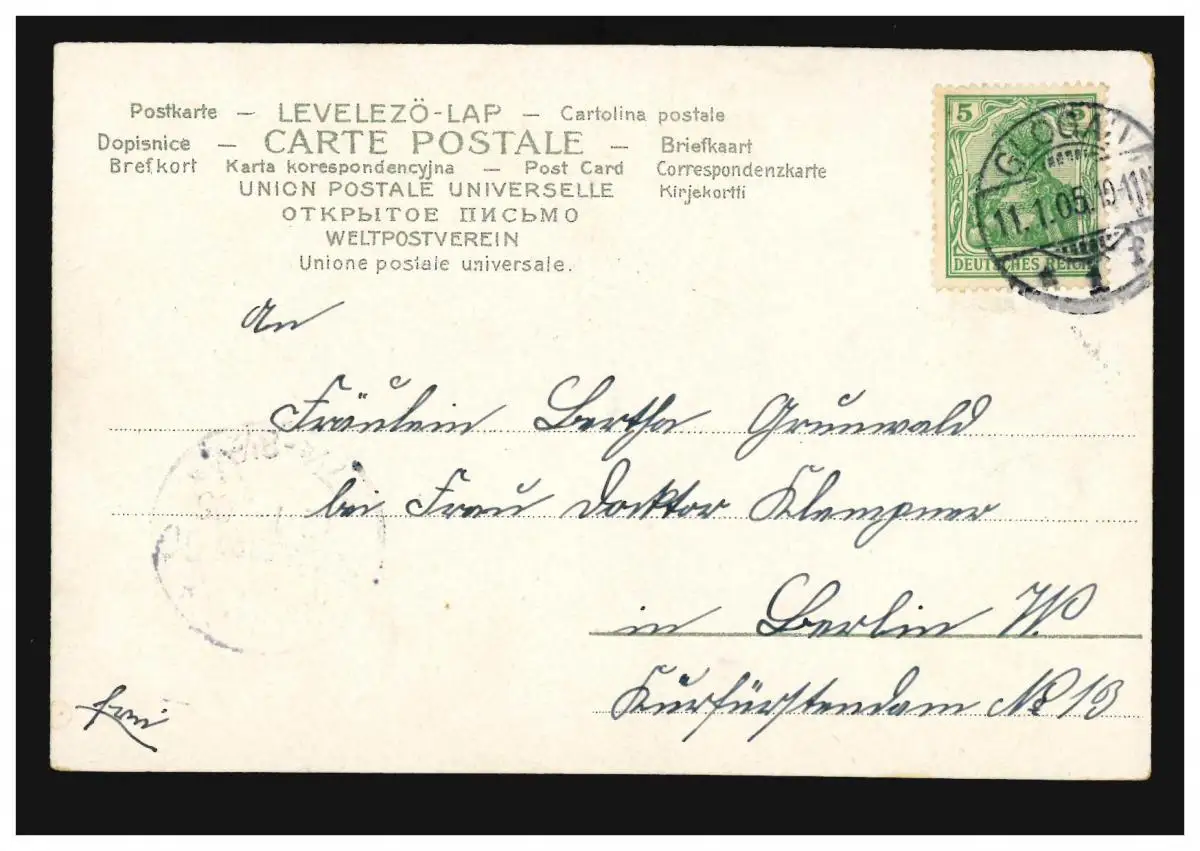 Postkarte — LEVELEZÖ-LAP — Cartolina postale
Dopisnice — CARTE POSTALE — Briefkaart
Brefkort Karta korespondencyjna — Post Card Correspondenzkarte
UNION POSTALE UNIVERSELLE Kirjekortti
ОТКРЫТОЕ ПИСЬМО
WELTPOSTVEREIN
Unione postale universale.
5 5
GLOGAU
11.1.05.10-11
* 1
DEUTSCHES REICH
An
Fräulein Bertha Grunwald
bei Frau Docktor Klempner
in Berlin W.
Kurfürstendam № 13
frei